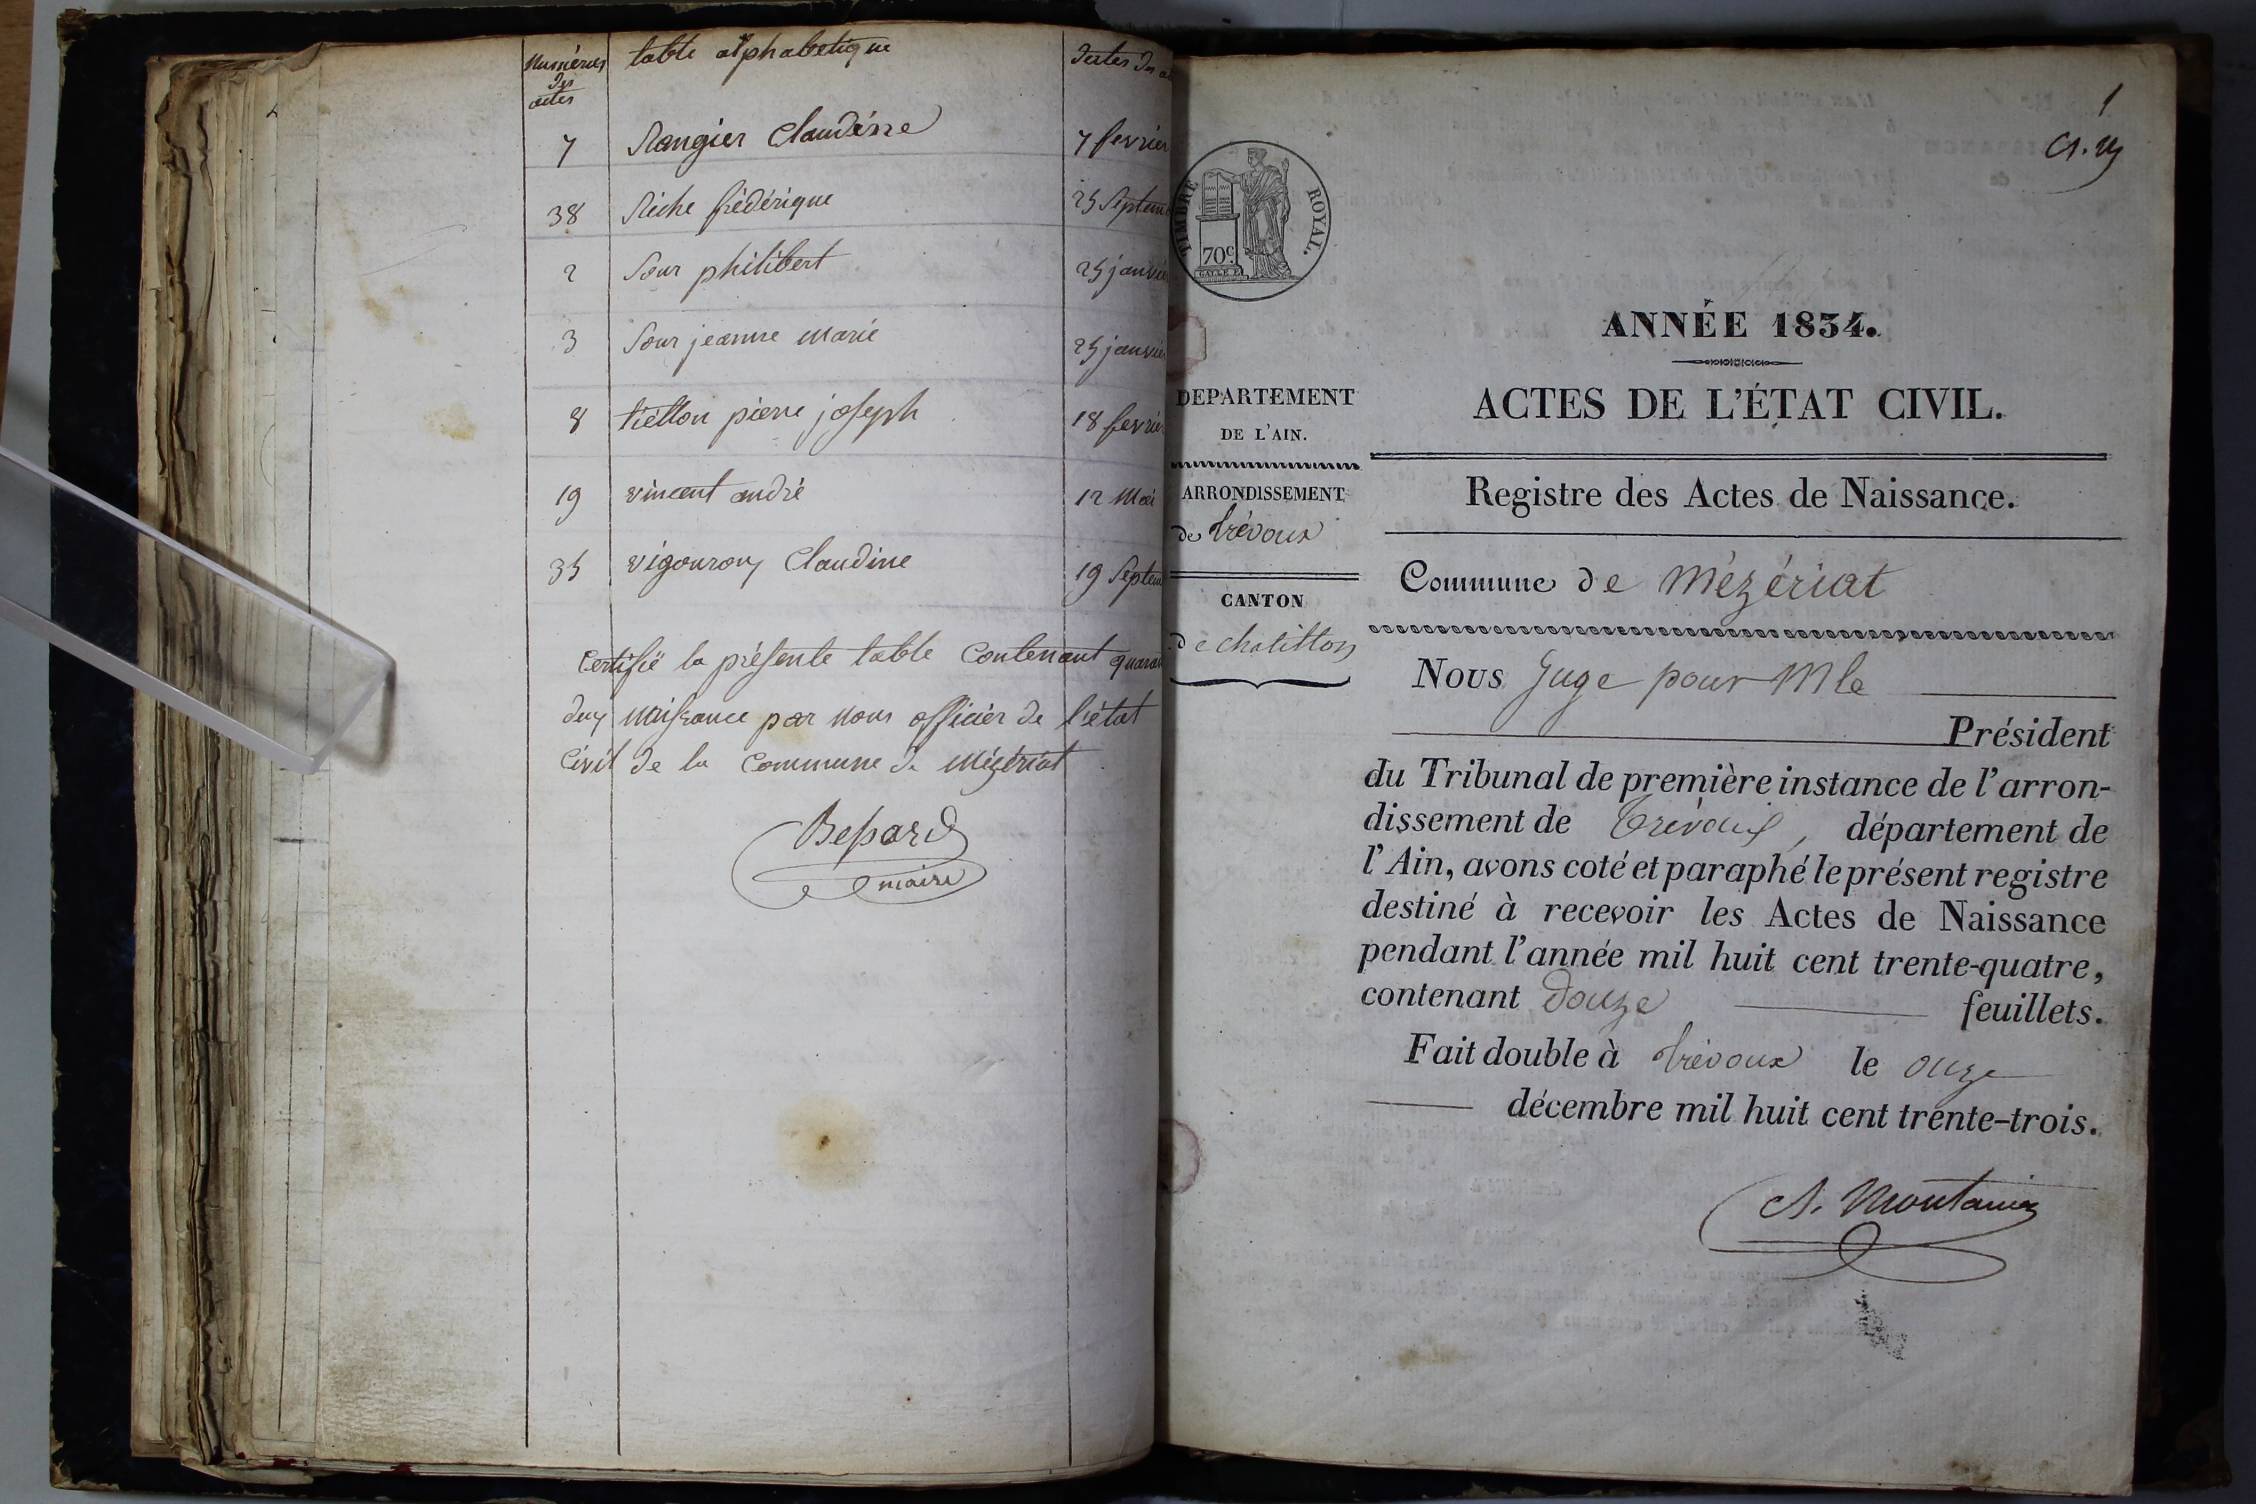 Numéros des actes
table alphabetique
Dates des
7 Rangier Claudine 7 fevrier
38 Riche frédérique 25 Septem
2 Sour philibert 25 janvie
3 Sour jeanne marie 25 janvier
8 tiétton pierre joseph 18 fevrier
19 vincent andré 12 Mai
35 vigourouy Claudine 19 Septem
Certifié la présente table Contenant quaran
deuy naissance par nous officier de l'état
Civil de la Commune de Mézériat
Bessard
maire
1
TIMBRE ROYAL.
70c.
ANNÉE 1834.
DEPARTEMENT
DE L'AIN.
ARRONDISSEMENT
de trévoux
CANTON
de chatillon
ACTES DE L'ÉTAT CIVIL.
Registre des Actes de Naissance.
Commune de Mézériat
Nous Juge pour Mle
Président
du Tribunal de première instance de l'arron-
dissement de Trévoux, département de
l'Ain, avons coté et paraphé le présent registre
destiné à recevoir les Actes de Naissance
pendant l'année mil huit cent trente-quatre,
contenant Douze feuillets.
Fait double à trévoux le onze
décembre mil huit cent trente-trois.